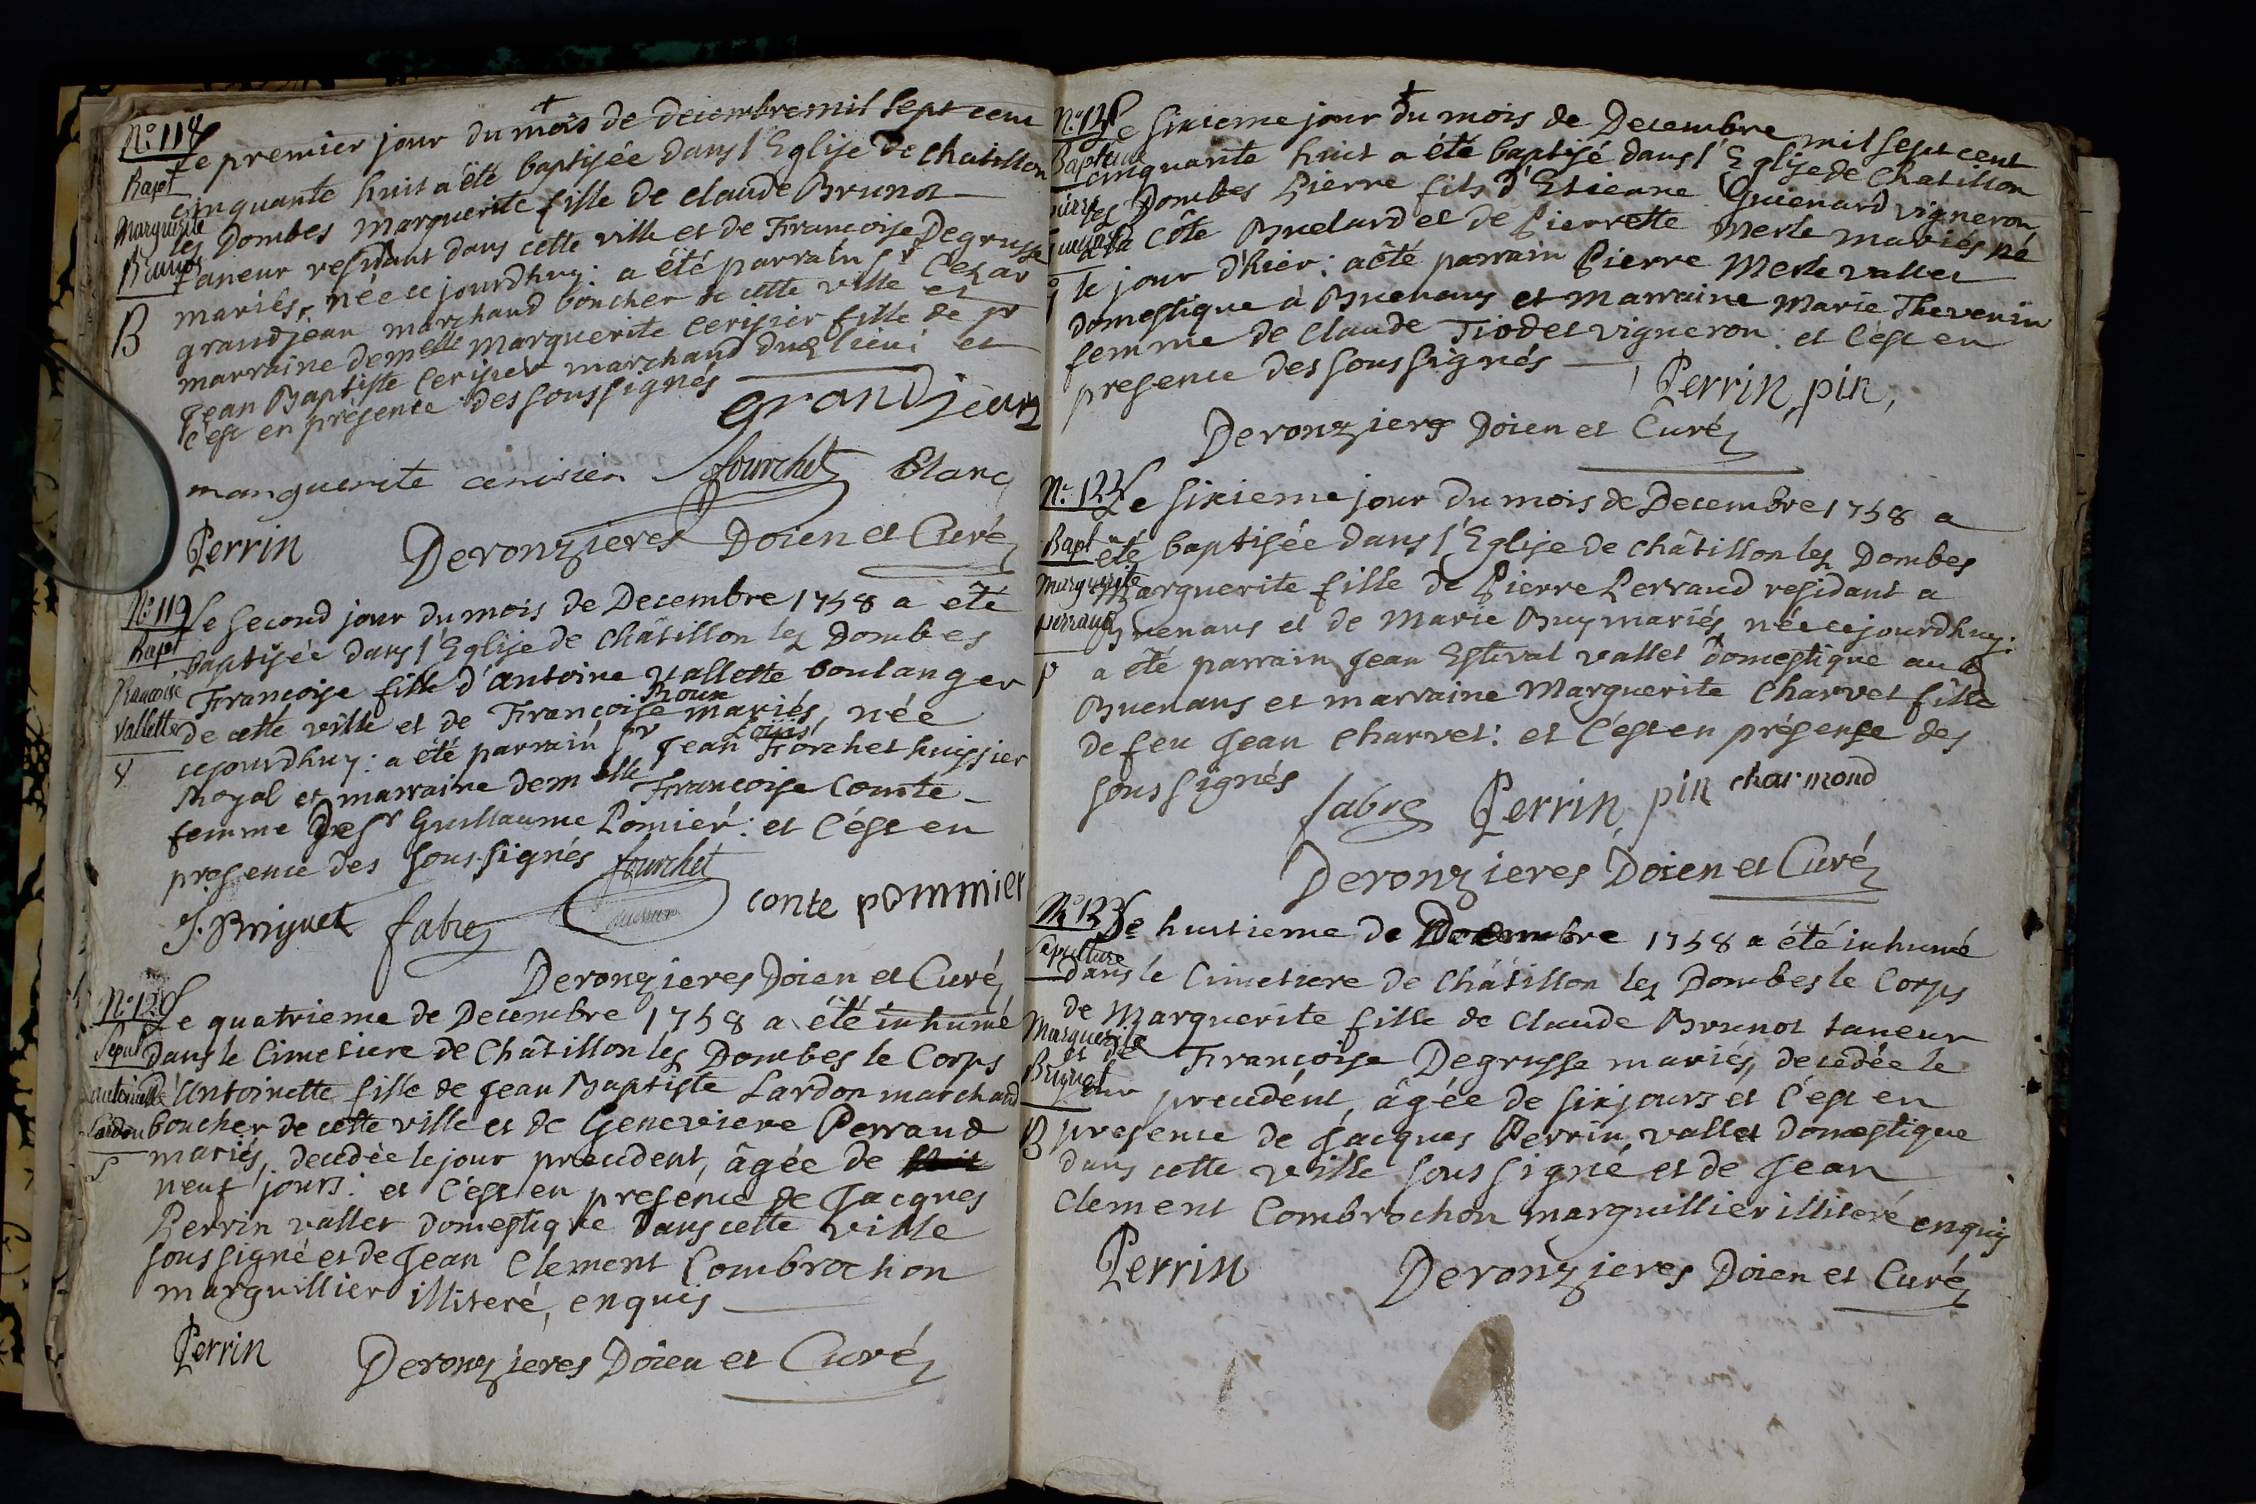 N.º 118
Bapt
Marguerite
Brunot
B
Le premier jour du mois de decembre mil sept cent
cinquante huit a été baptisée dans l'Eglise de chatillon
les Dombes Marguerite fille de claude Brunot
taneur residant dans cette ville et de Francoise Degrusse
mariés, née ce jourdhuy: a été parrain Sr Cezar
grandjean marchand boucher de cette ville et
marraine demelle Marguerite Cerisier fille de Sr
Jean Baptiste Cerisier marchand dud lieu: et
c'est en présence des soussignés
grandjean
marguerite cerisier fourchet Blanc
Perrin Deronzieres Doien et Curé
N.º 119
Bapt
Francoise
Vallette
V
Le second jour du mois de Decembre 1758 a été
baptisée dans l'Eglise de châtillon lez Dombes
Francoise fille d'antoine Vallette boulanger
de cette ville et de Francoise Roux mariés, née
cejourdhuy: a été parrain Sr Jean Louis Forchet huissier
Royal et marraine demoiselle Francoise Comte
femme de Sr Guillaume Pomier: et c'est en
presence des soussignés fourchet
J. Briguet fabre conte pommier
Deronzieres Doien et Curé
N.º 120
Sepult
antoinette
Lardon
Le quatrieme de Decembre 1758 a été inhumé
dans le Cimetiere de Châtillon lez Dombes le Corps
d'Antoinette fille de Jean Baptiste Lardon marchand
boucher de cette ville et de Genevieve Perraud
mariés, decedée le jour precedent, âgée de
neuf jours: et c'est en presence de Jacques
Perrin vallet domestique dans cette ville
soussigné et de Jean Clement Combrochon
marguillier illiteré, enquis
Perrin Deronzieres Doien et Curé
N.º 121
Bapteme
pierre
Le sixieme jour du mois de Decembre mil sept cent
cinquante huit a été baptisé dans l'Eglise de Chatillon
les Dombes Pierre fils d'Etienne Guienard vigneron
a la côte Buelard et de Pierrette Merle mariés né
le jour d'hier: a été parrain Pierre Merle vallet
domestique à Buenans et marraine Marie Thevenin
femme de Claude Tiodet vigneron: et c'est en
presence des soussignés Perrin, pin,
Deronzieres Doien et Curé
N.º 122
Bapt
Marguerite
perraud
P
Le sixieme jour du mois de Decembre 1758 a
été baptisée dans l'Eglise de châtillon lez Dombes
Marguerite fille de Pierre Perraud residant a
Buenans et de Marie Buy mariés, née cejourdhuy:
a été parrain Jean Estival vallet domestique au d
Buenans et marraine Marguerite Charvet fille
de feu Jean Charvet: et c'est en présence des
soussignés fabre Perrin, pin charmond
Deronzieres Doien et Curé
N.º 123
Sepulture
Marguerite
B
Le huitieme de Decembre 1758 a été inhumé
dans le Cimetiere de Châtillon lez Dombes le Corps
de Marguerite fille de Claude Brunot taneur
et de Francoise Degrusse mariés, decedée le
jour precedent, âgée de six jours et c'est en
presence de Jacques Perrin, vallet Domestique
dans cette ville soussigné et de Jean
Clement Combrochon marguillier illiteré enquis
Perrin Deronzieres Doien et Curé